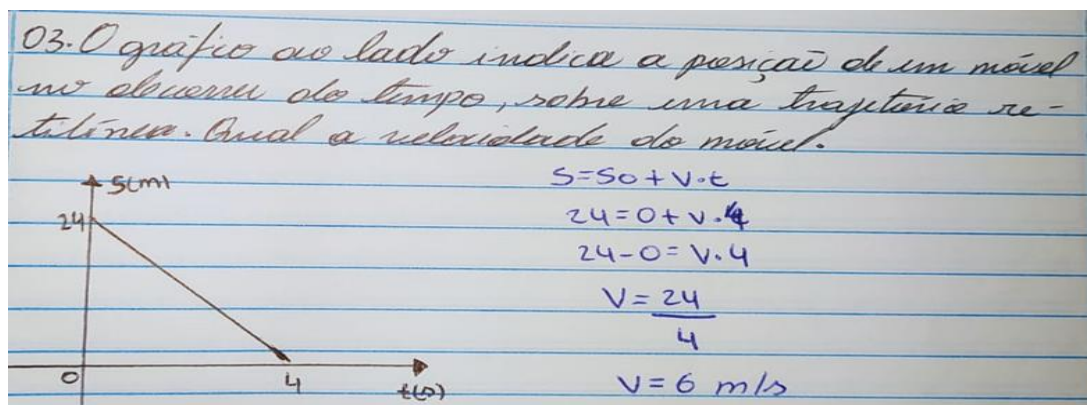 03. O gráfico ao lado indica a posição de um móvel
no decorrer do tempo, sobre uma trajetória re-
tilínea. Qual a velocidade do móvel.
S(m)
24
0
4
t(s)
S=So+V.t
24=0+V.4
24-0=V.4
V=24
4
V=6 m/s